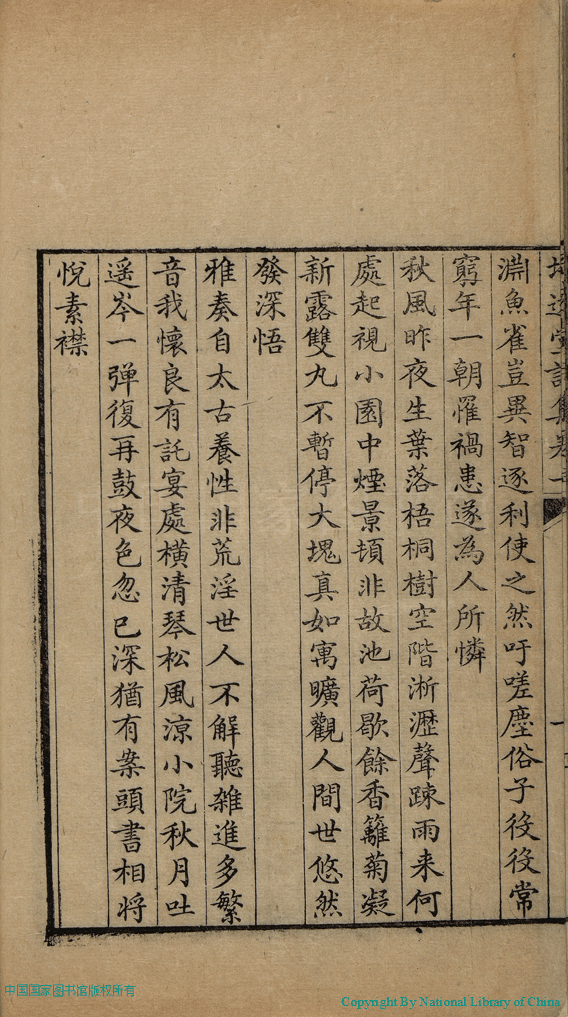 堂詩集卷一
淵魚雀豈異智逐利使之然吁嗟塵俗子役役常
窮年一朝罹禍患遂為人所憐
秋風昨夜生葉落梧桐樹空階淅瀝聲踈雨来何
處起視小園中煙景頓非故池荷歇餘香籬菊凝
新露雙丸不暫停大塊真如寓曠觀人間世悠然
發深悟
雅奏自太古養性非荒淫世人不解聽雜進多繁
音我懷良有託宴處橫清琴松風涼小院秋月吐
遥岑一弹復再鼓夜色忽已深猶有案頭書相将
悅素襟
中国国家图书馆版权所有
Copyright By National Library of China